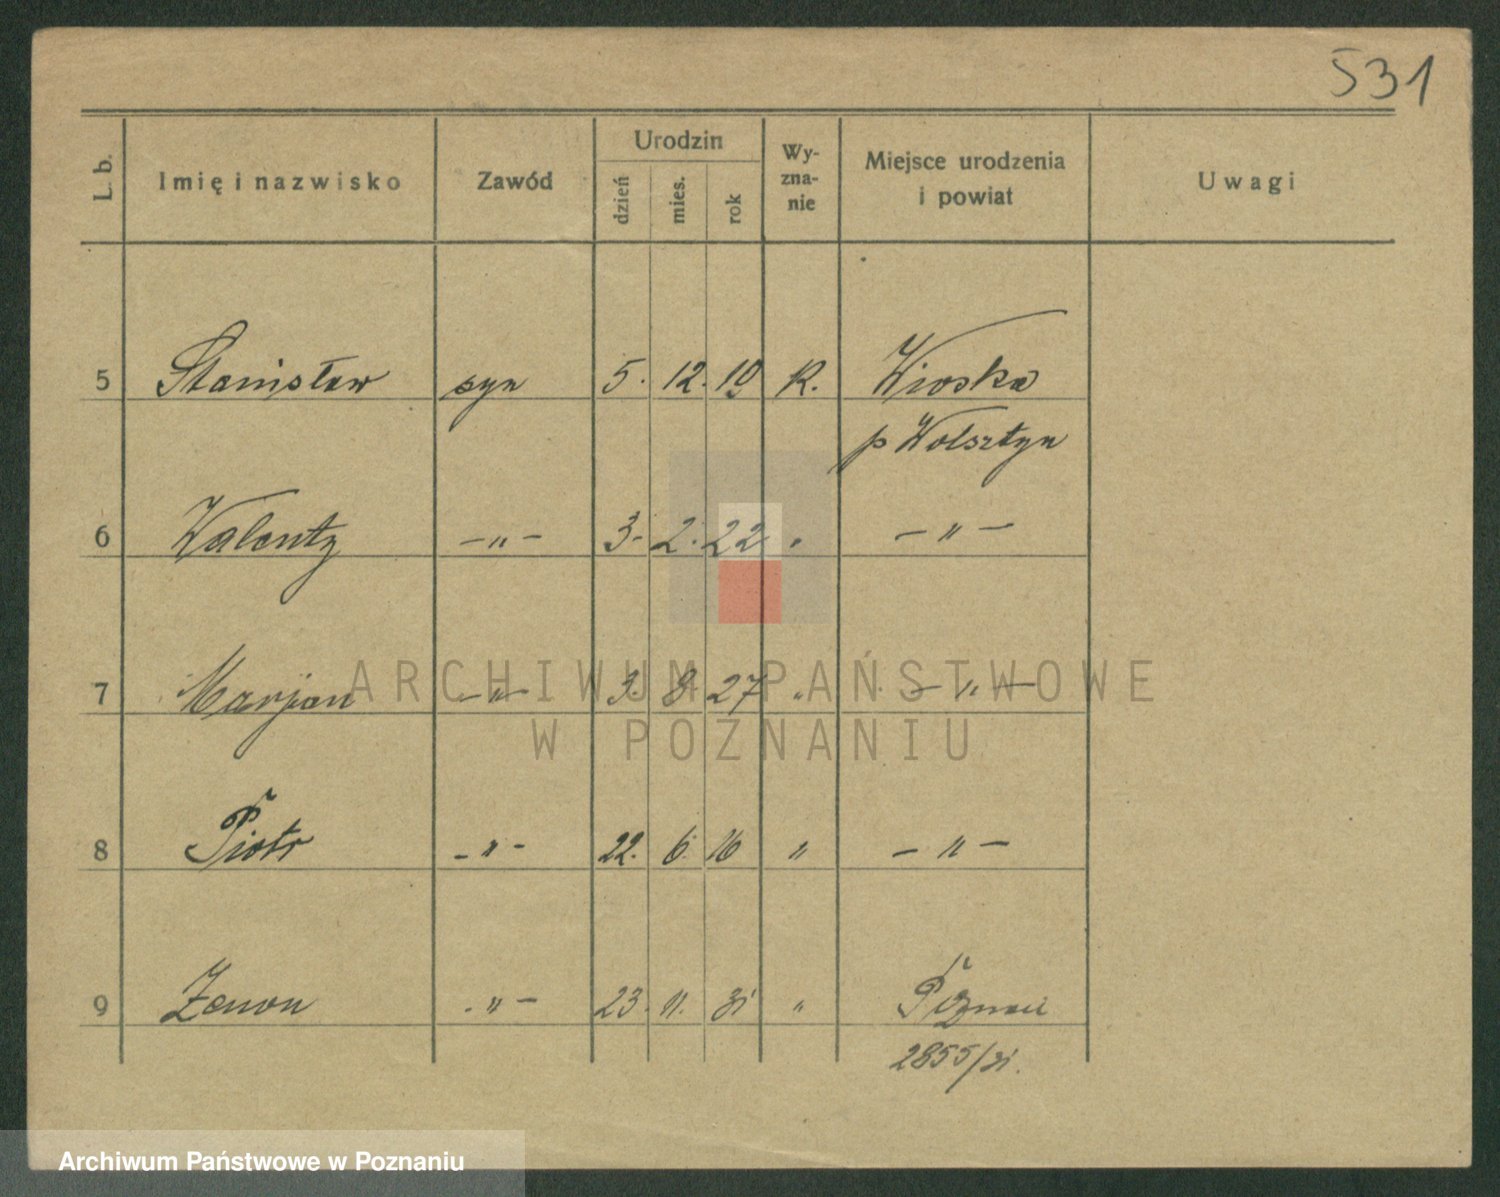 531
L. b. Imię i nazwisko Zawód Urodzin dzień mies. rok Wy-zna-nie Miejsce urodzenia i powiat Uwagi
5 Stanisław syn 5. 12. 19 R. Wioska
p Wolsztyn
6 Walenty —„— 3. 2. 22 „ —„—
7 Marjan —„— 3. 8. 27 „ —„—
8 Piotr —„— 22. 6. 16 „ —„—
9 Zenon —„— 23. 11. 31 „ Poznań
2855/31.
ARCHIWUM PAŃSTWOWE
W POZNANIU
Archiwum Państwowe w Poznaniu